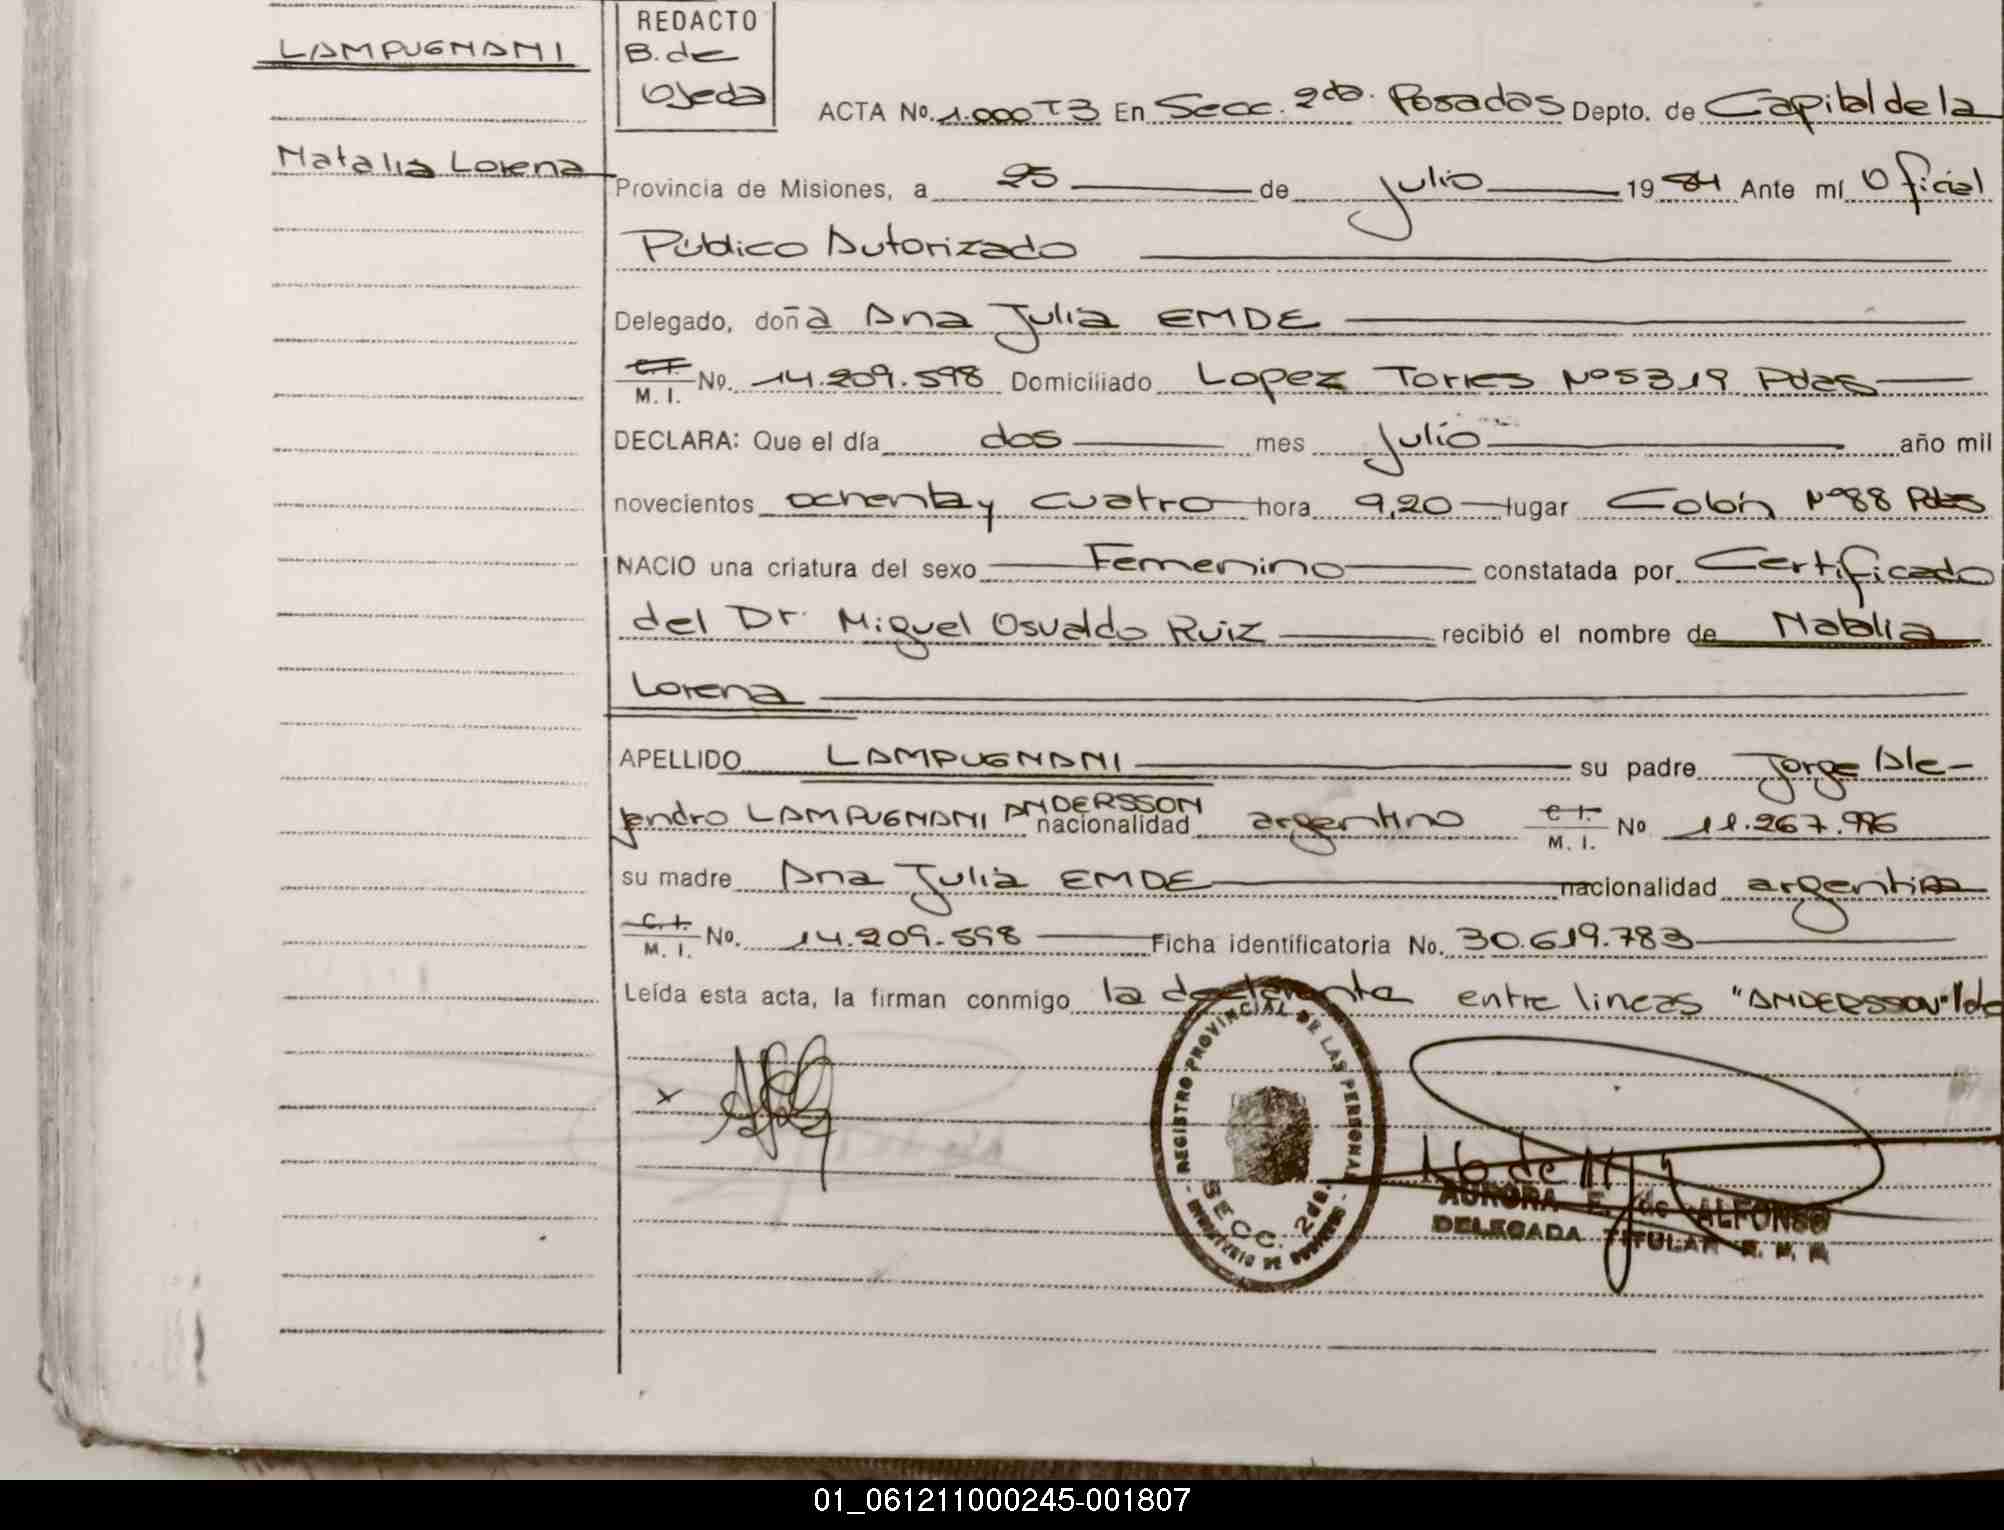 LAMPUGNANI
Natalia Lorena
REDACTO
B. de
Ojeda
ACTA No. 1.000 T3 En Secc. 2da. Posadas Depto. de Capital de la
Provincia de Misiones, a 25 de julio 1984 Ante mí Oficial
Público Autorizado
Delegado, doña Ana Julia EMDE
C.I. M. I. No. 14.209.598 Domiciliado Lopez Torres Nº 5319 Pdas
DECLARA: Que el día dos mes julio año mil
novecientos ochenta y cuatro hora 9,20 lugar Colón Nº 88 Pdas
NACIO una criatura del sexo Femenino constatada por Certificado
del Dr. Miguel Osvaldo Ruiz recibió el nombre de Natalia
Lorena
APELLIDO LAMPUGNANI su padre Jorge Ale-
jandro LAMPUGNANI ANDERSSON nacionalidad argentino C.I. M. I. No 11.267.996
su madre Ana Julia EMDE nacionalidad argentina
C.I. M. I. No. 14.209.598 Ficha identificatoria No. 30.619.783
Leída esta acta, la firman conmigo la declarante entre lineas "ANDERSSON"
REGISTRO PROVINCIAL DE LAS PERSONAS
SECC. 2da.
MINISTERIO DE GOBIERNO
AURORA E. de ALFONSO
DELEGADA TITULAR
01_061211000245-001807